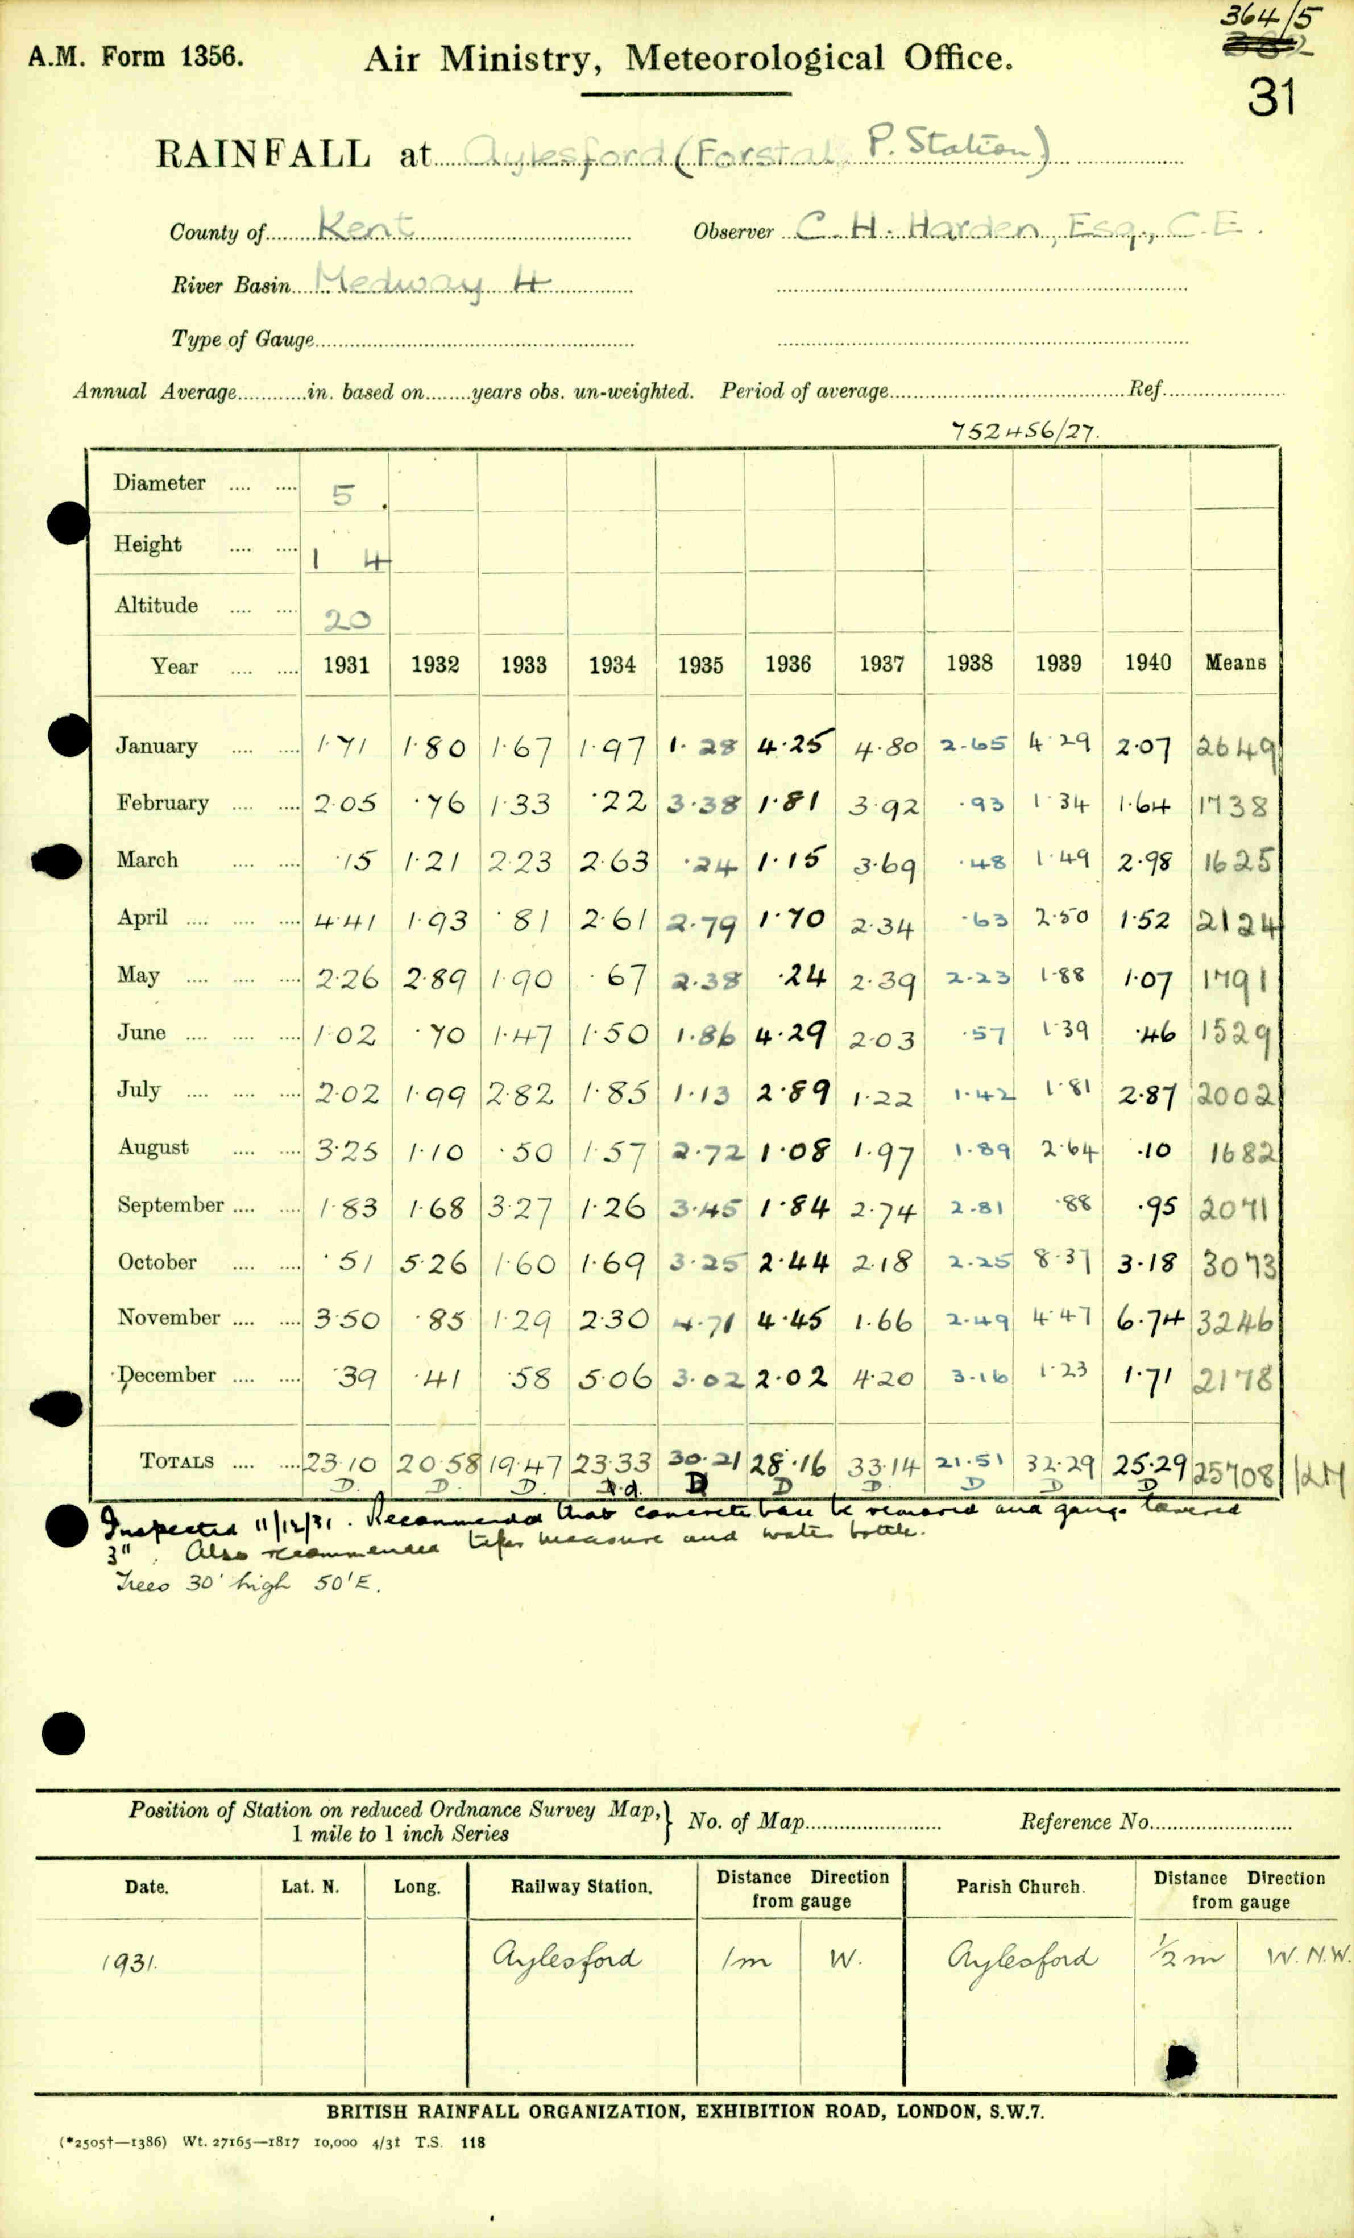 364/5
31
A.M. Form 1356. Air Ministry, Meteorological Office.
RAINFALL at Aylesford (Forstal P. Station)
County of Kent Observer C. H. Harden, Esq., C.E.
River Basin Medway 4
Type of Gauge
Annual Average in. based on years obs. un-weighted. Period of average Ref.
752456/27.
Diameter 5
Height 1 4
Altitude 20
Year 1931 1932 1933 1934 1935 1936 1937 1938 1939 1940 Means
January 1.71 1.80 1.67 1.97 1.28 4.25 4.80 2.65 4.29 2.07 2649
February 2.05 .76 1.33 .22 3.38 1.81 3.92 .93 1.34 1.64 1738
March .15 1.21 2.23 2.63 .24 1.15 3.69 .48 1.49 2.98 1625
April 4.41 1.93 .81 2.61 2.79 1.70 2.34 .63 2.50 1.52 2124
May 2.26 2.89 1.90 .67 2.38 .24 2.39 2.23 1.88 1.07 1791
June 1.02 .70 1.47 1.50 1.86 4.29 2.03 .57 1.39 .46 1529
July 2.02 1.99 2.82 1.85 1.13 2.89 1.22 1.42 1.81 2.87 2002
August 3.25 1.10 .50 1.57 2.72 1.08 1.97 1.89 2.64 .10 1682
September 1.83 1.68 3.27 1.26 3.45 1.84 2.74 2.81 .88 .95 2071
October .51 5.26 1.60 1.69 3.25 2.44 2.18 2.25 8.37 3.18 3073
November 3.50 .85 1.29 2.30 4.71 4.45 1.66 2.49 4.47 6.74 3246
December .39 .41 .58 5.06 3.02 2.02 4.20 3.16 1.23 1.71 2178
TOTALS 23.10 20.58 19.47 23.33 30.21 28.16 33.14 21.51 32.29 25.29 25708
D. D. D. D.d. D D D. D D D
Inspected 11/12/31. Recommended that concrete base be removed and gauge lowered
3". Also recommended taper measure and water bottle.
Trees 30' high 50'E.
Position of Station on reduced Ordnance Survey Map,} No. of Map Reference No.
1 mile to 1 inch Series
Date. Lat. N. Long. Railway Station. Distance Direction from gauge Parish Church. Distance Direction from gauge
1931. Aylesford 1m W. Aylesford 1/2 m W.N.W.
BRITISH RAINFALL ORGANIZATION, EXHIBITION ROAD, LONDON, S.W.7.
(*2505†—1386) Wt. 27165—1817 10,000 4/31 T.S. 118